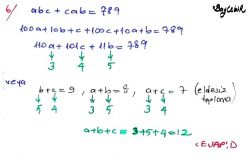 6/ abc + cab = 789
100a+10b+c+100c+10a+b=789
110a+101c+11b=789
3 4 5
veya
b+c=9, a+b=8, a+c=7 (eldesiz toplama)
5 4 3 5 3 4
a+b+c = 3+5+4=12
CEVAP: D